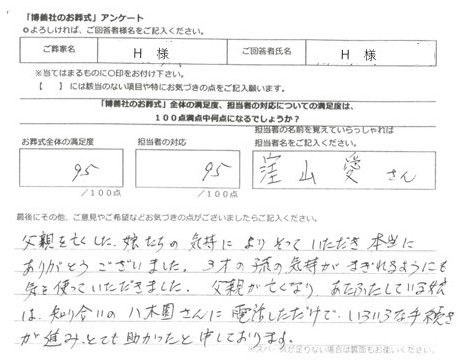 「博善社のお葬式」アンケート
○よろしければ、ご回答者様名をご記入ください。
ご葬家名 H 様 ご回答者氏名 H 様
※当てはまるものに○印をお付け下さい。
【　】には該当のない項目や特にお気づきの点をご記入願います。
「博善社のお葬式」全体の満足度、担当者の対応についての満足度は、
100点満点中何点になるでしょうか？
お葬式全体の満足度 担当者の対応
担当者の名前を覚えていらっしゃれば
担当者名をご記入ください。
95 95 窪山 愛 さん
/100点 /100点
最後にその他、ご意見やご希望などお気づきの点がございましたらご記入ください。
父親を亡くした、娘たちの気持によりそっていただき本当に
ありがとうございました。3才の孫の気持がまぎれるようにも
気を使っていただきました。父親が亡くなり、あたふたしている
は、知り合いの八木園さんに電話しただけで、いろいろな手続き
が進み、とても助かったと申しております。
※スペースが足りない場合は裏面もお使いください。